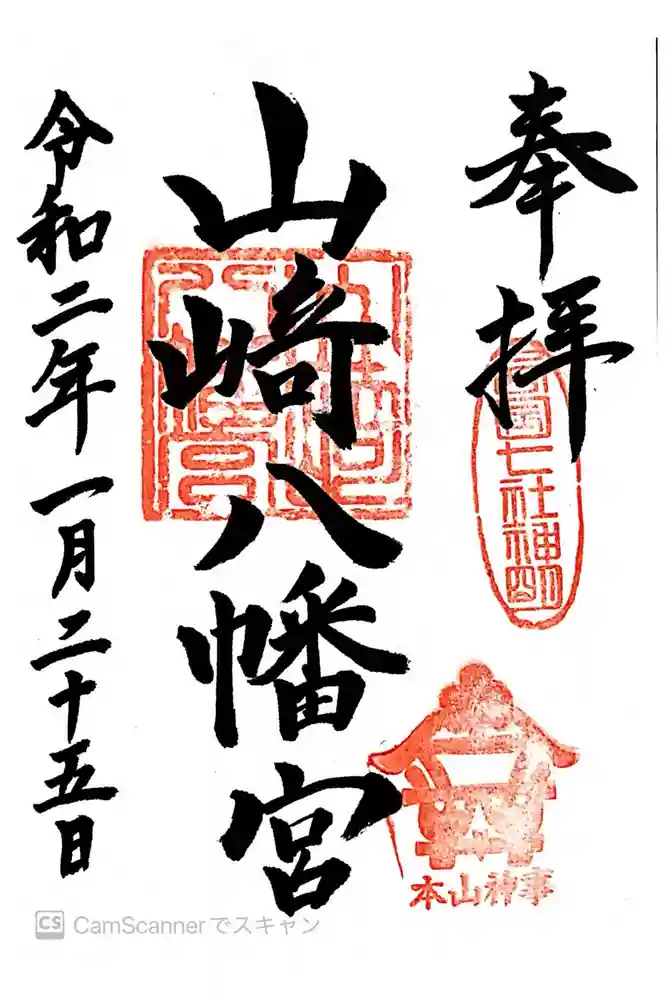 奉拝
山崎八幡宮
令和二年一月二十五日
七社神
本山神事
CS CamScannerでスキャン